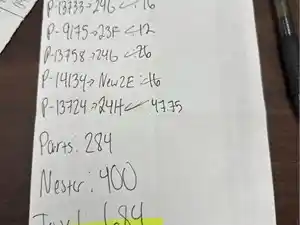 P-13733→24G ✓16
P-9175→23F✓12
P-13758→24G ✓26
P-14134→New2E:16
P-13724→24H✓ 47.75
Parts: 284
Nester: 400
684